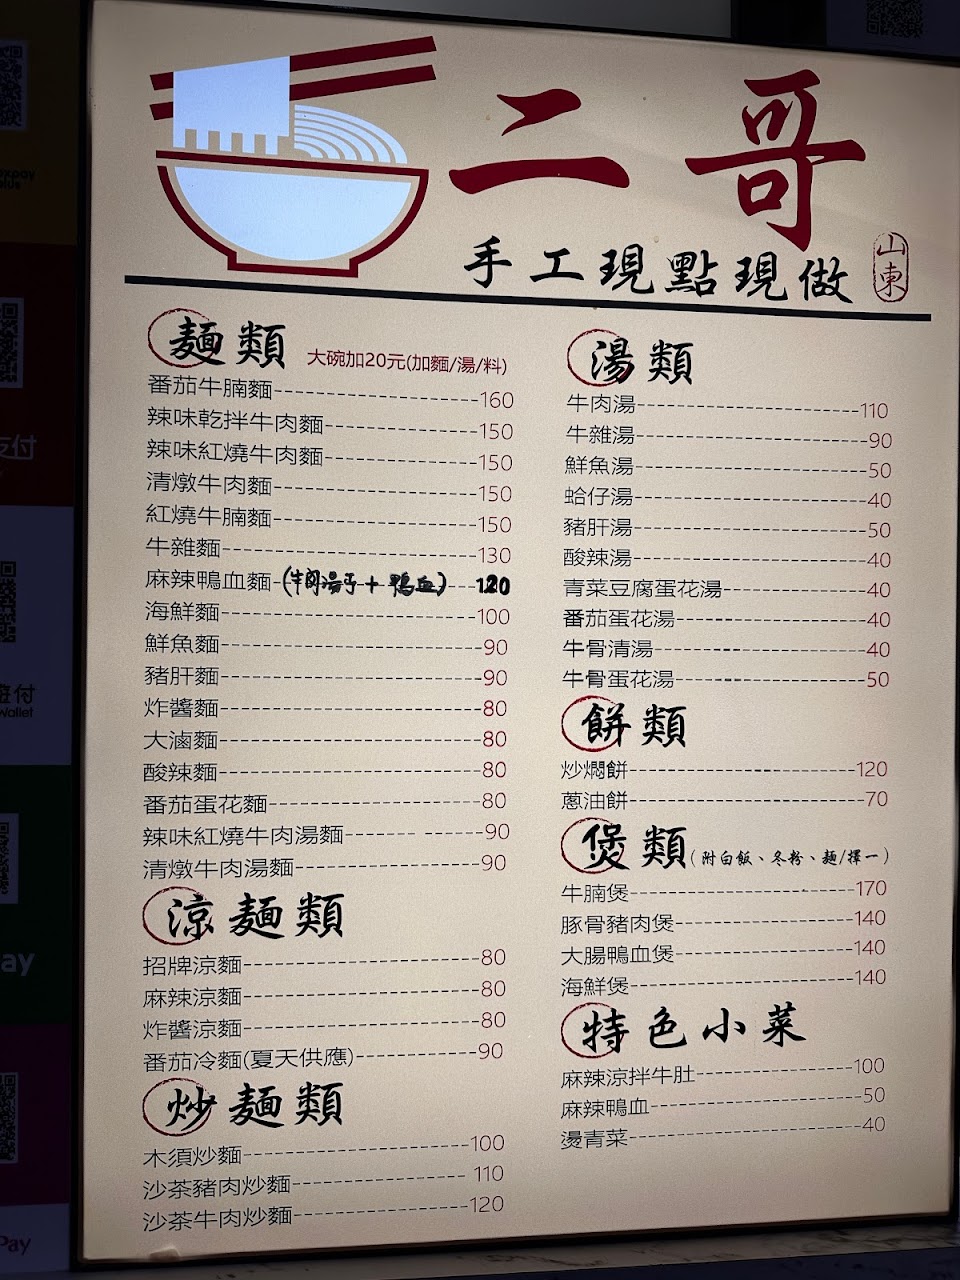 二哥
手工現點現做
山東
麵類 大碗加20元(加麵/湯/料)
番茄牛腩麵 160
辣味乾拌牛肉麵 150
辣味紅燒牛肉麵 150
清燉牛肉麵 150
紅燒牛腩麵 150
牛雜麵 130
麻辣鴨血麵 (牛肉湯丁+鴨血) 120
海鮮麵 100
鮮魚麵 90
豬肝麵 90
炸醬麵 80
大滷麵 80
酸辣麵 80
番茄蛋花麵 80
辣味紅燒牛肉湯麵 90
清燉牛肉湯麵 90
涼麵類
招牌涼麵 80
麻辣涼麵 80
炸醬涼麵 80
番茄冷麵(夏天供應) 90
炒麵類
木須炒麵 100
沙茶豬肉炒麵 110
沙茶牛肉炒麵 120
湯類
牛肉湯 110
牛雜湯 90
鮮魚湯 50
蛤仔湯 40
豬肝湯 50
酸辣湯 40
青菜豆腐蛋花湯 40
番茄蛋花湯 40
牛骨清湯 40
牛骨蛋花湯 50
餅類
炒燜餅 120
蔥油餅 70
煲類(附白飯、冬粉、麵/擇一)
牛腩煲 170
豚骨豬肉煲 140
大腸鴨血煲 140
海鮮煲 140
特色小菜
麻辣涼拌牛肚 100
麻辣鴨血 50
燙青菜 40
支付
付
Wallet
ay
Pay